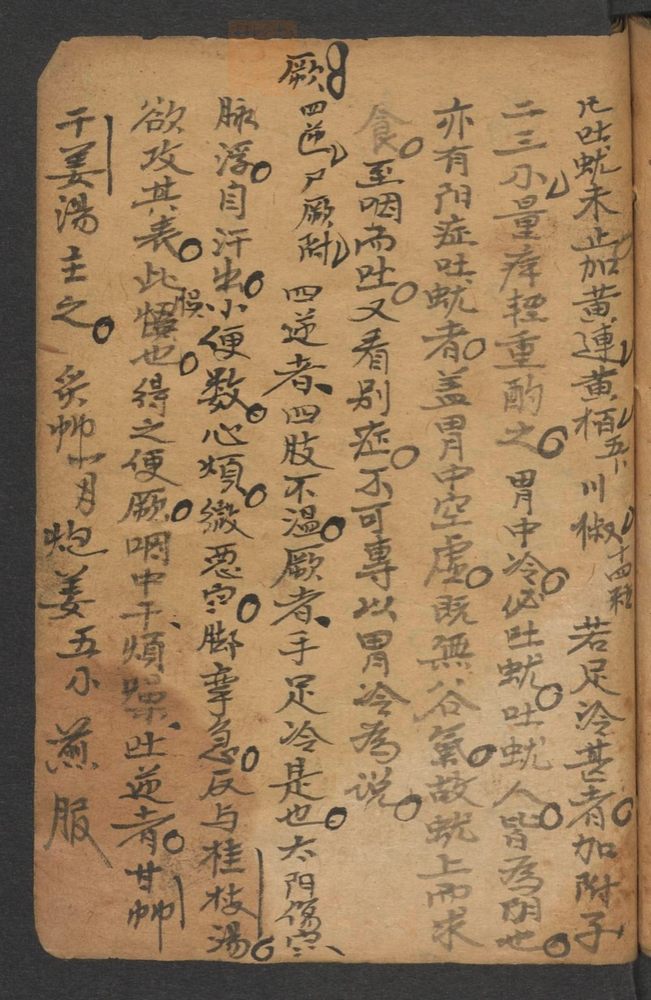 凡吐蚘未止加黄連黄栢五卜川椒十四粒 若足冷甚者加附子
二三小量痒輕重酌之 胃中冷必吐蚘吐蚘人皆為阴也
亦有阳症吐蚘者盖胃中空虚既無谷氣故蚘上而求
食至咽而吐又看別症不可專以胃冷為说
厥四逆尸厥附 四逆者四肢不温厥者手足冷是也太阳傷寒
脉浮自汗出小便数心煩微恶寒脚挛急反与桂枝湯
欲攻其表此悞也得之便厥咽中干煩躁吐逆者甘艸
悞
干姜湯主之 炙艸一月炮姜五小 煎服